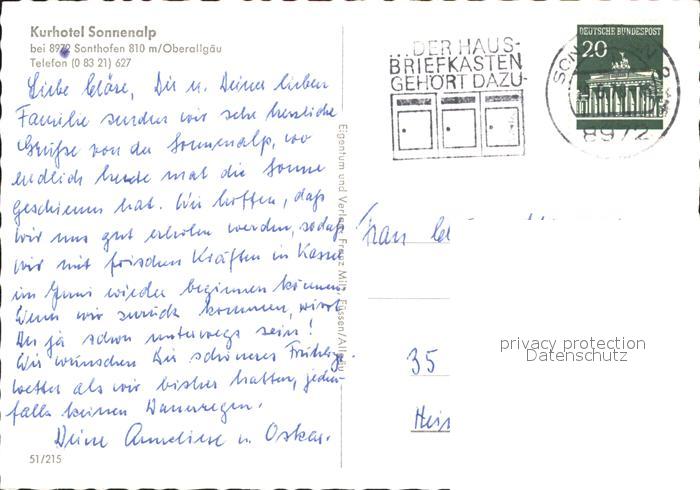 Kurhotel Sonnenalp
bei 8972 Sonthofen 810 m/Oberallgäu
Telefon (0 83 21) 627
Liebe Cläre, Dir u. Deiner lieben
Familie senden wir sehr herzliche
Grüße von der Sonnenalp, wo
endlich heute mal die Sonne
geschienen hat. Wir hoffen, daß
wir uns gut erholen werden, sodaß
wir mit frischen Kräften in Kassel
im Juni wieder beginnen können.
Wenn wir zurück kommen, wirst
Du ja schon unterwegs sein!
Wir wünschen Dir schöneres Frühlings-
wetter als wir bisher hatten, jeden-
falls keinen Dauerregen.
Deine Anneliese u. Oskar.
51/215
Eigentum und Verlag: Franz Milz, Füssen/Allgäu
...DER HAUS-
BRIEFKASTEN
GEHÖRT DAZU-
DEUTSCHE BUNDESPOST
20
8972
Frau
35
privacy protection
Datenschutz